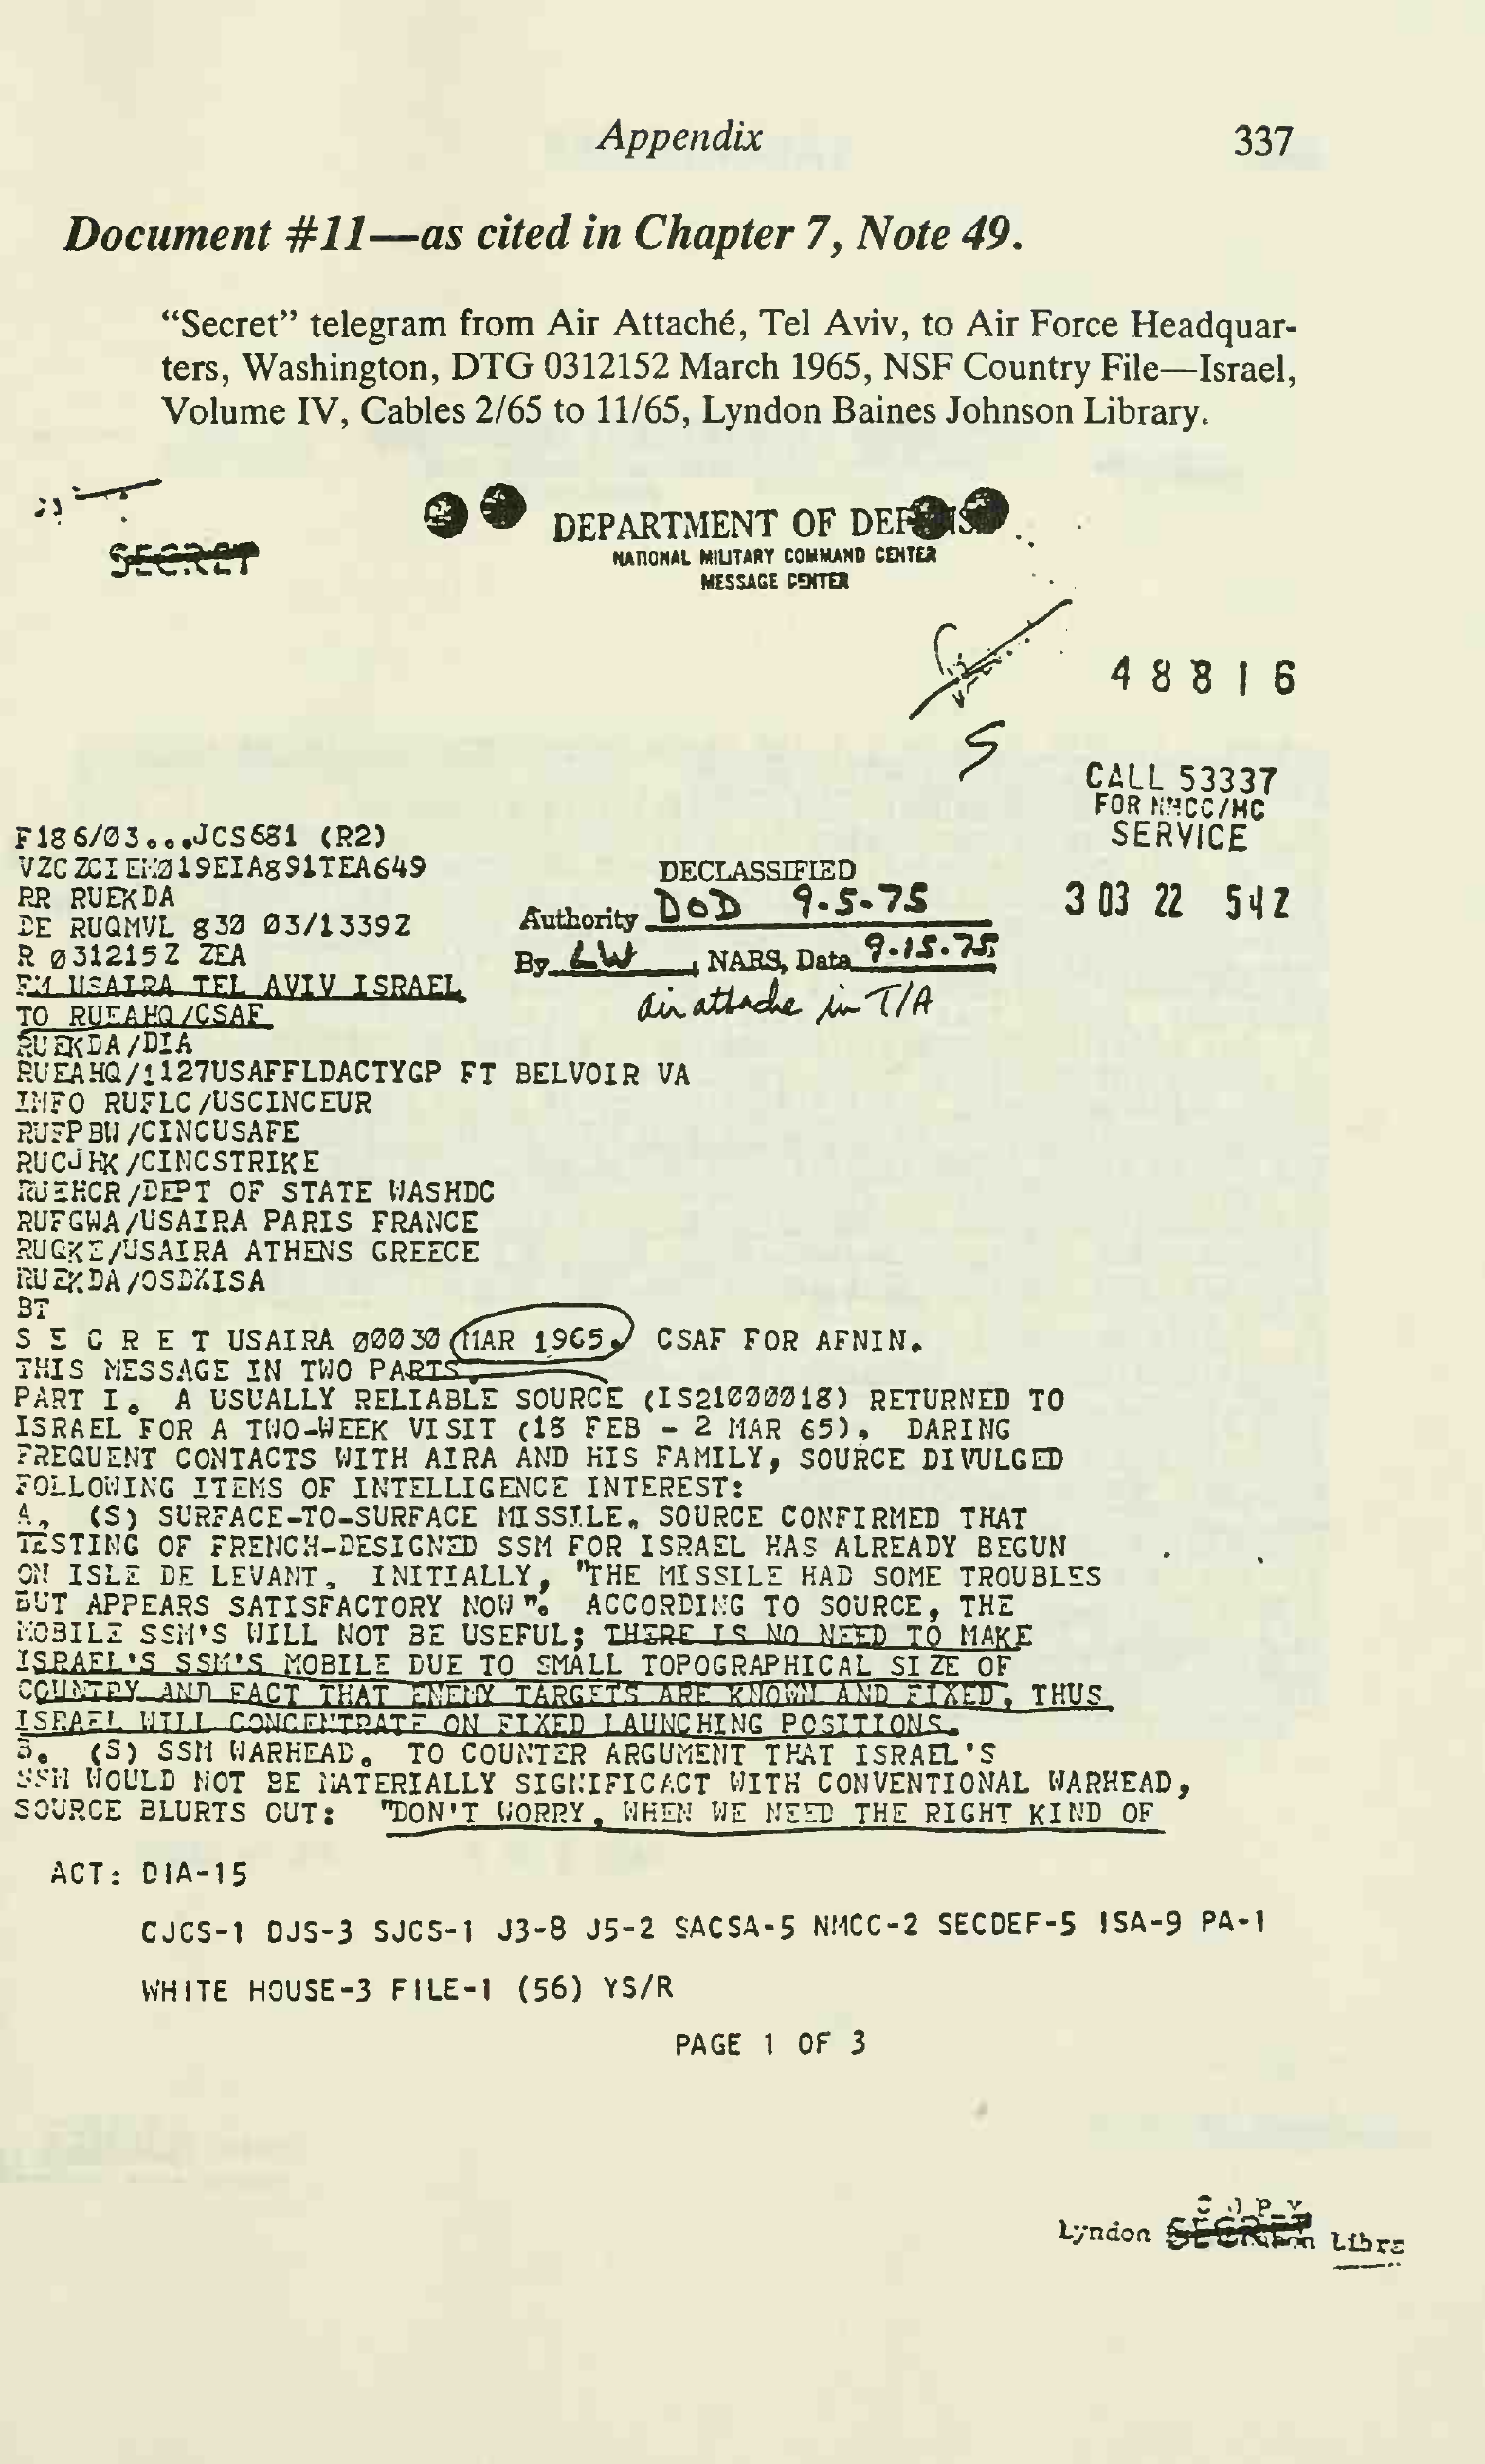 Appendix 337
Document #11—as cited in Chapter 7, Note 49.
“Secret” telegram from Air Attaché, Tel Aviv, to Air Force Headquar-
ters, Washington, DTG 0312152 March 1965, NSF Country File—Israel,
Volume IV, Cables 2/65 to 11/65, Lyndon Baines Johnson Library.
SECRET
DEPARTMENT OF DEFENSE
NATIONAL MILITARY COMMAND CENTER
MESSAGE CENTER
4 8 8 1 6
S
CALL 53337
FOR NMCC/MC
SERVICE
3 03 22 54Z
F186/03...JCS681 (R2)
VZCZCIEM019EIA891TEA649
RR RUEKDA
DE RUQMVL 830 03/1339Z
R 031215Z ZEA
FM USAIRA TEL AVIV ISRAEL
TO RUEAHQ/CSAF
RUEKDA/DIA
RUEAHQ/1127USAFFLDACTYGP FT BELVOIR VA
INFO RUFLC/USCINCEUR
RUFPBW/CINCUSAFE
RUCJHK/CINCSTRIKE
RUEHCR/DEPT OF STATE WASHDC
RUFGWA/USAIRA PARIS FRANCE
RUQKE/USAIRA ATHENS GREECE
RUEKDA/OSDXISA
BT
DECLASSIFIED
Authority DOD 9-5-75
By LW, NARS, Data 9-15-75
air attache in T/A
S E C R E T USAIRA 00030 MAR 1965. CSAF FOR AFNIN.
THIS MESSAGE IN TWO PARTS.
PART I. A USUALLY RELIABLE SOURCE (IS21000018) RETURNED TO
ISRAEL FOR A TWO-WEEK VISIT (18 FEB - 2 MAR 65). DARING
FREQUENT CONTACTS WITH AIRA AND HIS FAMILY, SOURCE DIVULGED
FOLLOWING ITEMS OF INTELLIGENCE INTEREST:
A. (S) SURFACE-TO-SURFACE MISSILE. SOURCE CONFIRMED THAT
TESTING OF FRENCH-DESIGNED SSM FOR ISRAEL HAS ALREADY BEGUN
ON ISLE DE LEVANT. INITIALLY, "THE MISSILE HAD SOME TROUBLES
BUT APPEARS SATISFACTORY NOW". ACCORDING TO SOURCE, THE
MOBILE SSM'S WILL NOT BE USEFUL; THERE IS NO NEED TO MAKE
ISRAEL'S SSM'S MOBILE DUE TO SMALL TOPOGRAPHICAL SIZE OF
COUNTRY AND FACT THAT ENEMY TARGETS ARE KNOWN AND FIXED; THUS
ISRAEL WILL CONCENTRATE ON FIXED LAUNCHING POSITIONS.
B. (S) SSM WARHEAD. TO COUNTER ARGUMENT THAT ISRAEL'S
SSM WOULD NOT BE MATERIALLY SIGNIFICACT WITH CONVENTIONAL WARHEAD,
SOURCE BLURTS OUT: "DON'T WORRY, WHEN WE NEED THE RIGHT KIND OF
ACT: DIA-15
CJCS-1 DJS-3 SJCS-1 J3-8 J5-2 SACSA-5 NMCC-2 SECDEF-5 ISA-9 PA-1
WHITE HOUSE-3 FILE-1 (56) YS/R
PAGE 1 OF 3
COPY
Lyndon SECRET Libra